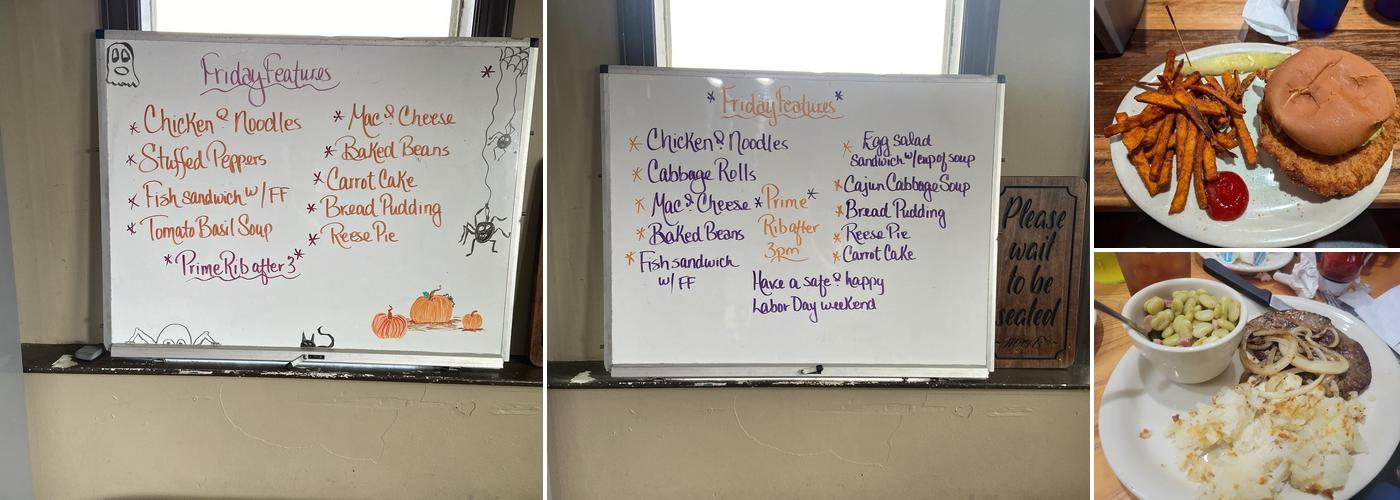 Friday Features
* Chicken & Noodles
* Stuffed Peppers
* Fish sandwich w/ FF
* Tomato Basil Soup
* Mac & Cheese
* Baked Beans
* Carrot Cake
* Bread Pudding
* Reese Pie
* Prime Rib after 3 *
* Friday Features *
* Chicken & Noodles
* Cabbage Rolls
* Mac & Cheese
* Baked Beans
* Fish sandwich
w/ FF
* Prime *
Rib after
3pm
* Egg salad
sandwich w/ cup of soup
* Cajun Cabbage Soup
* Bread Pudding
* Reese Pie
* Carrot Cake
Have a safe & happy
Labor Day weekend
Please
wait
to be
seated